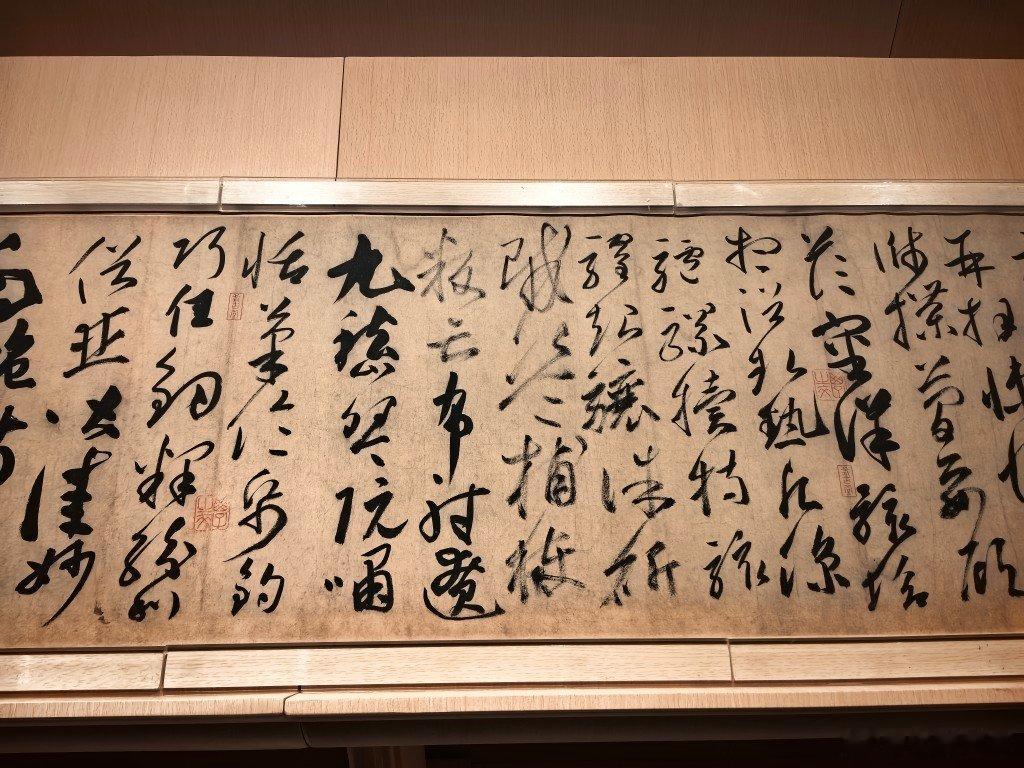 再拜悚懼
牋牒簡要顧
答審詳骸垢
想浴執熱願涼
驢騾犢特駭
躍超驤誅斬
賊盜捕獲
叛亡布射遼
丸嵇琴阮嘯
恬筆倫紙鈞
巧任釣釋紛利
俗並皆佳妙